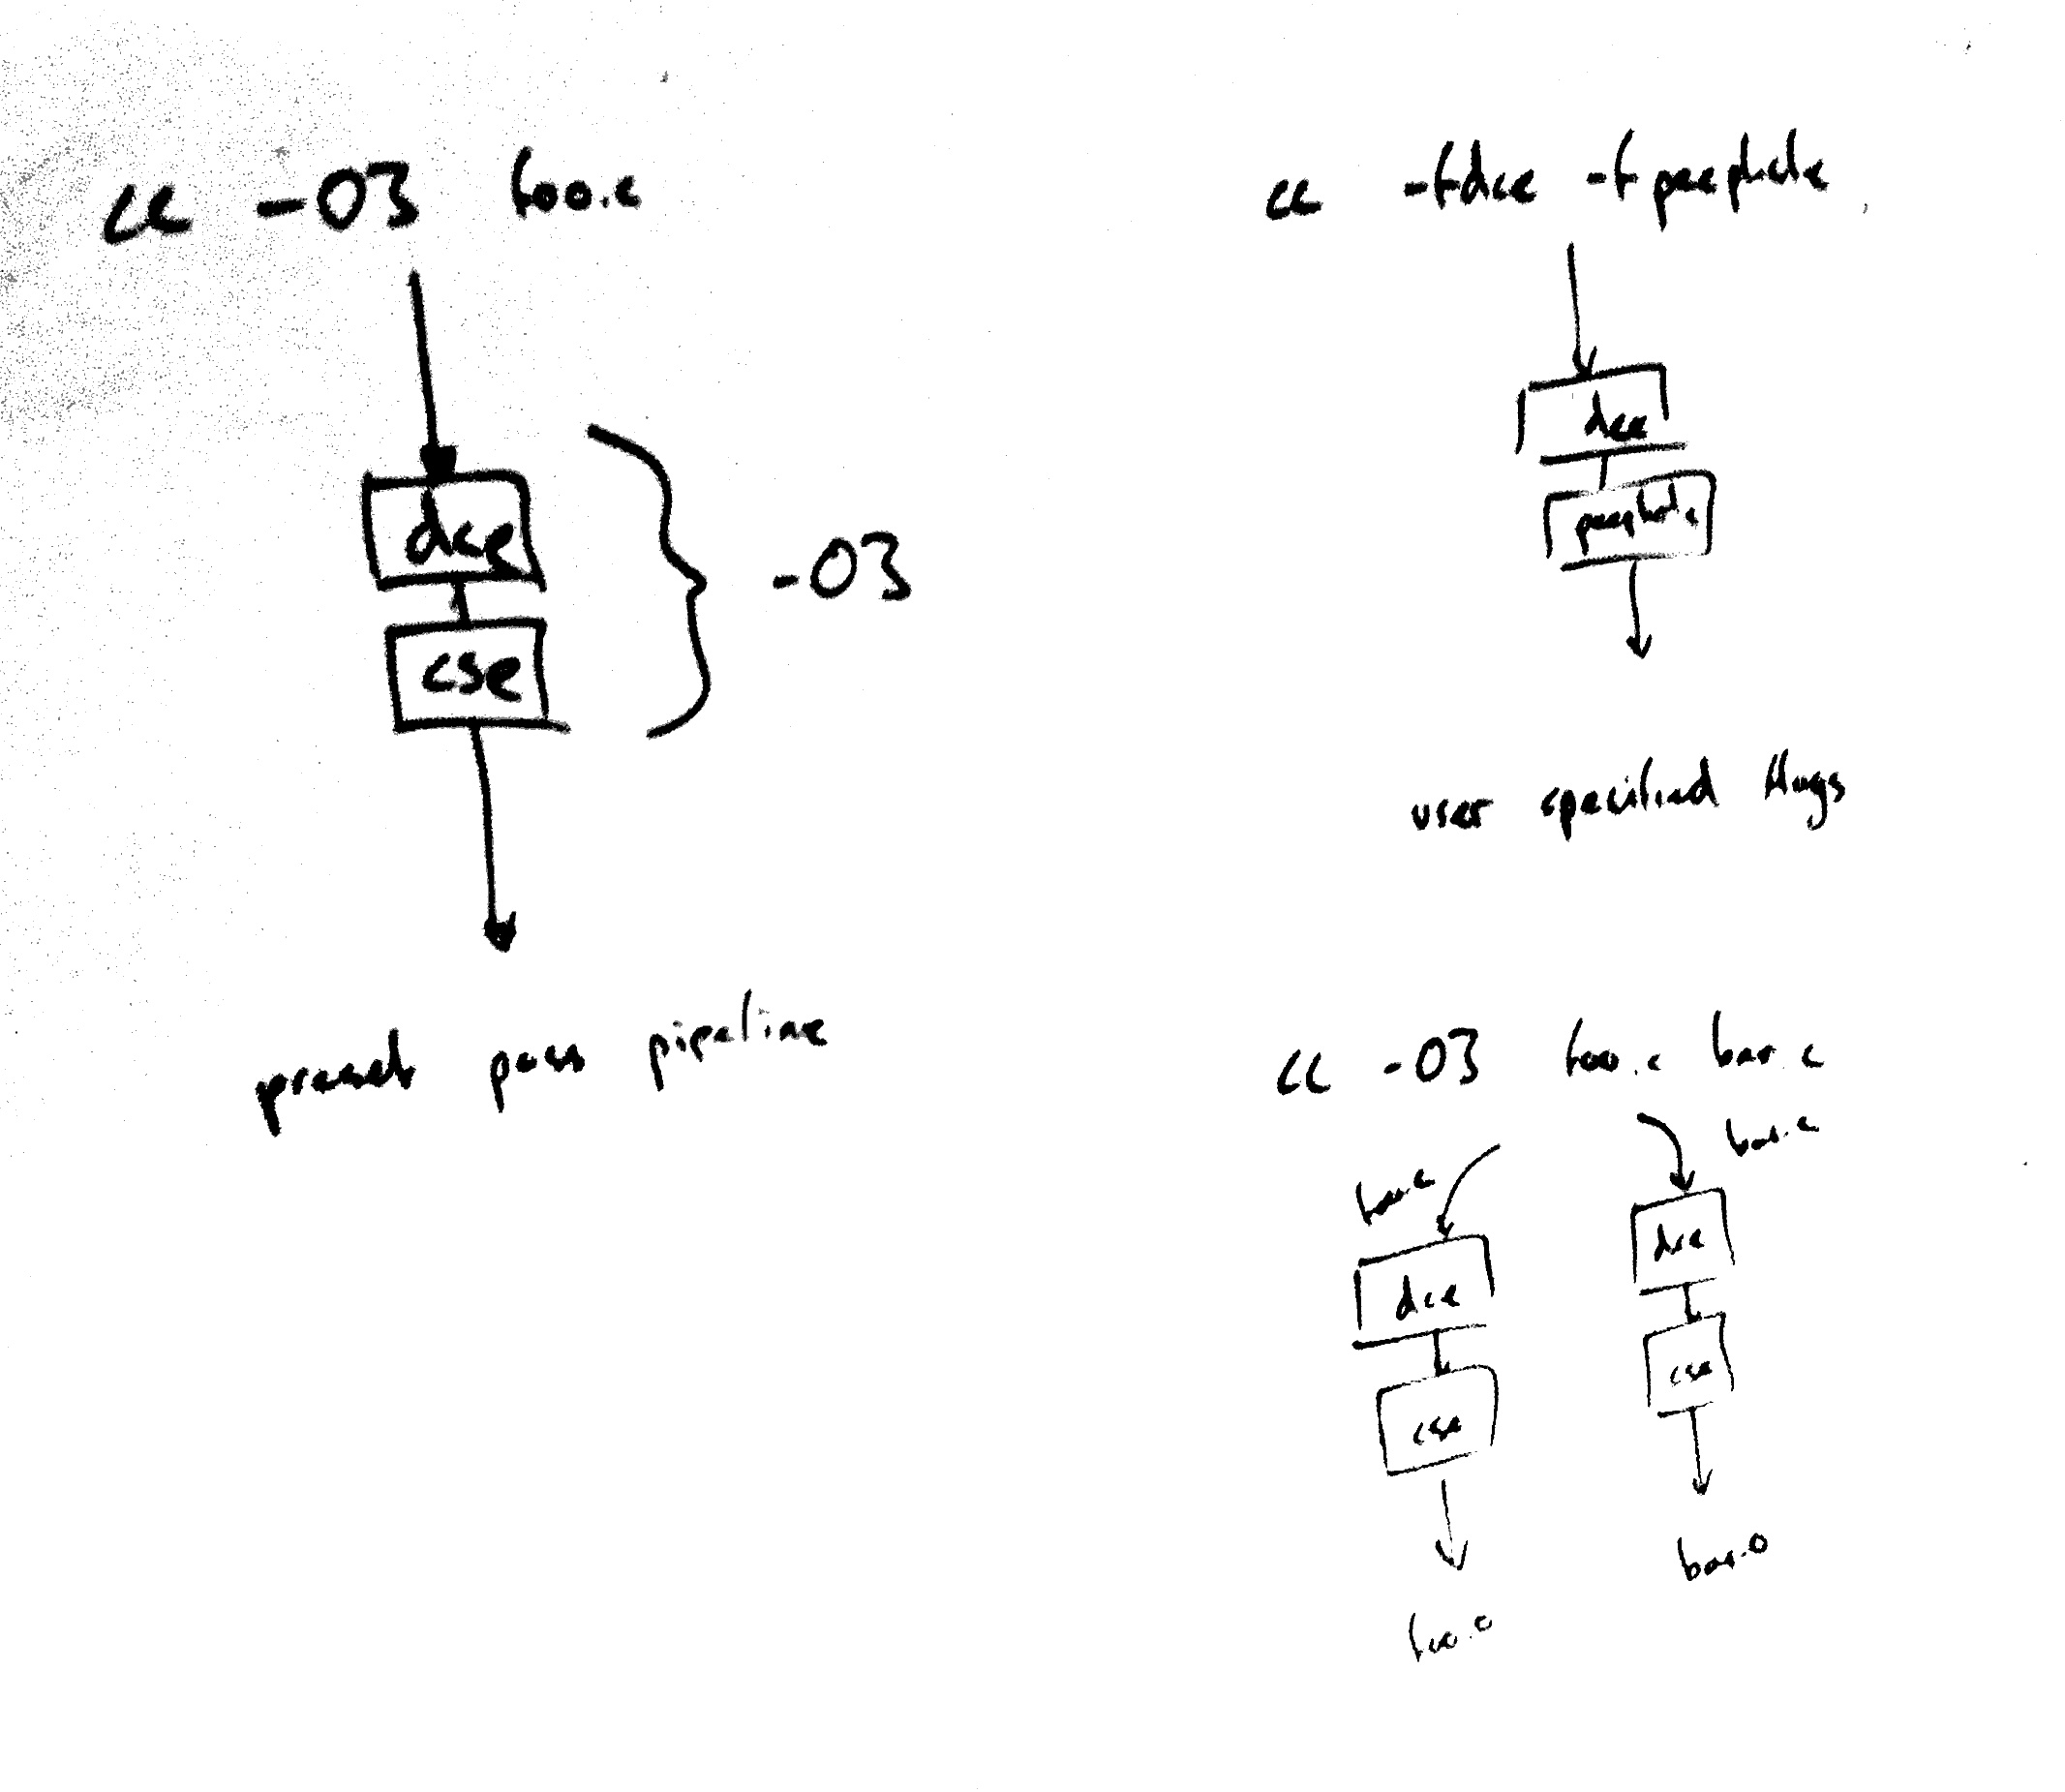 cc -O3 foo.c
dce
cse
-O3
preset pass pipeline
cc -fdce -fpeephole
dce
peephole
user specified flags
cc -O3 foo.c bar.c
foo.c
bar.c
dce
dce
cse
cse
foo.o
bar.o